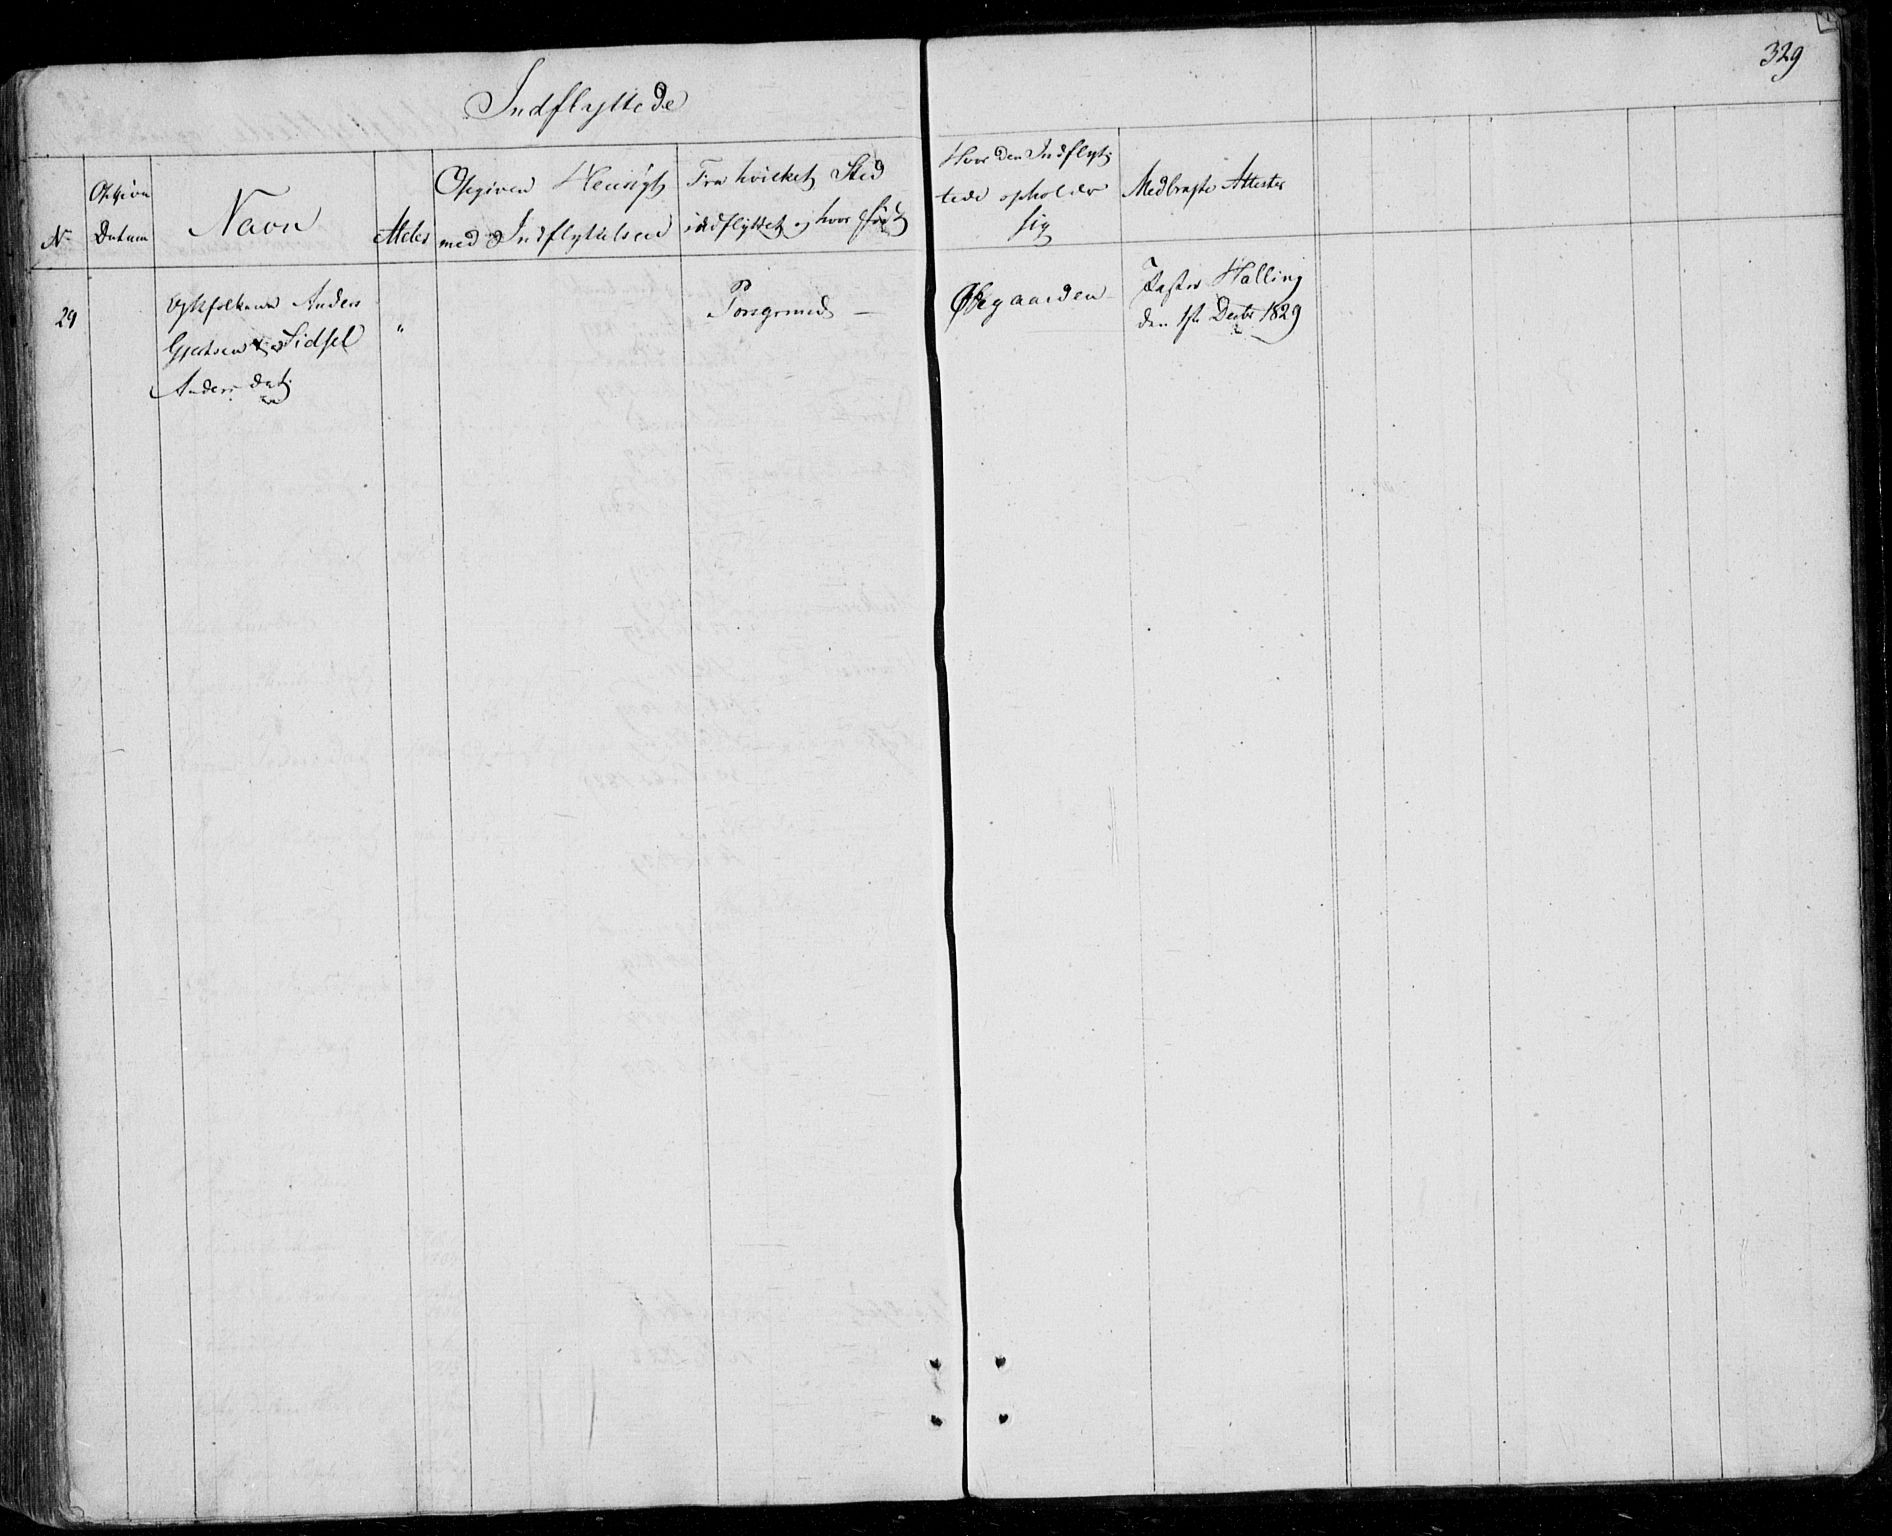 329
Indflyttede
No
Opgiven
Datum
Navn
Alder
Opgiven Hensigt
med Indflyttelsen
Fra hvilket Sted
indflyttet og hvor født
Hvor den Indflyt-
tede opholder
sig
Medbragte Attester
29
Ægtfolkene Anders
Gjertsen og Sidsel
Anders dat.
"
Porsgrund —
Øvegaarden
Pastor Halling
den 1ste Decbr 1829